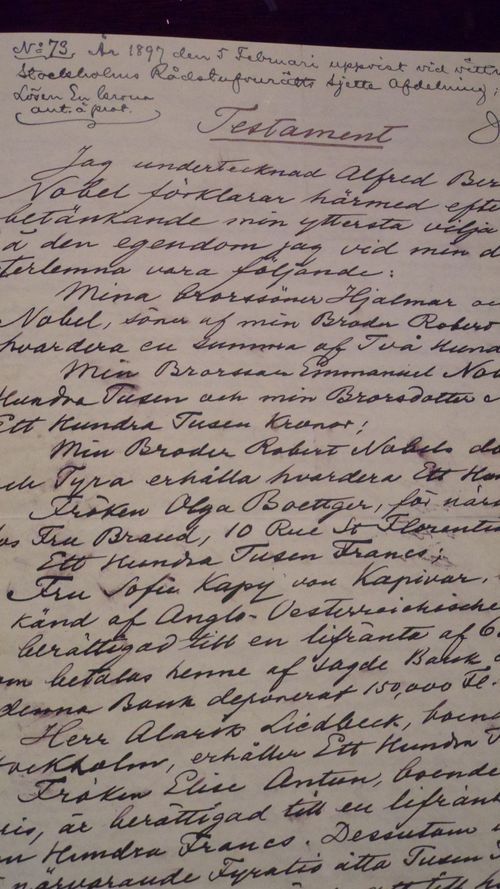 No 73. År 1897 den 5 Februari uppvist vid vittn
Stockholms Rådstufvurätts sjette Afdelning;
Lösen En krona
aut. å prot.
Testament
Jag undertecknad Alfred Ber
Nobel förklarar härmed efte
betänkande min yttersta vilja
å den egendom jag vid min d
terlemna vara följande:
Mina brorssöner Hjalmar oc
Nobel, söner af min Broder Robert
hvardera en summa af Två Hund
Min Brorsson Emmanuel Nob
Hundra Tusen och min Brorsdotter
Ett Hundra Tusen Kronor;
Min Broder Robert Nobels do
och Tyra erhålla hvardera Ett Hun
Fröken Olga Boettger, för närv
os Fru Brand, 10 Rue St Florentin
Ett Hundra Tusen Francs;
Fru Sofie Kapy von Kapivar,
känd af Anglo-Oesterreichische
berättigad till en lifränta af 6
om betalas henne af sagde Bank
denna Bank deponerat 150,000 Fl.
Herr Alarik Liedbeck, boend
Stockholm, erhåller Ett Hundra T
Fröken Elise Antun, boende
ris, är berättigad till en lifränt
Hundra Francs. Dessutom
närvarande Fyratio åtta Tusen